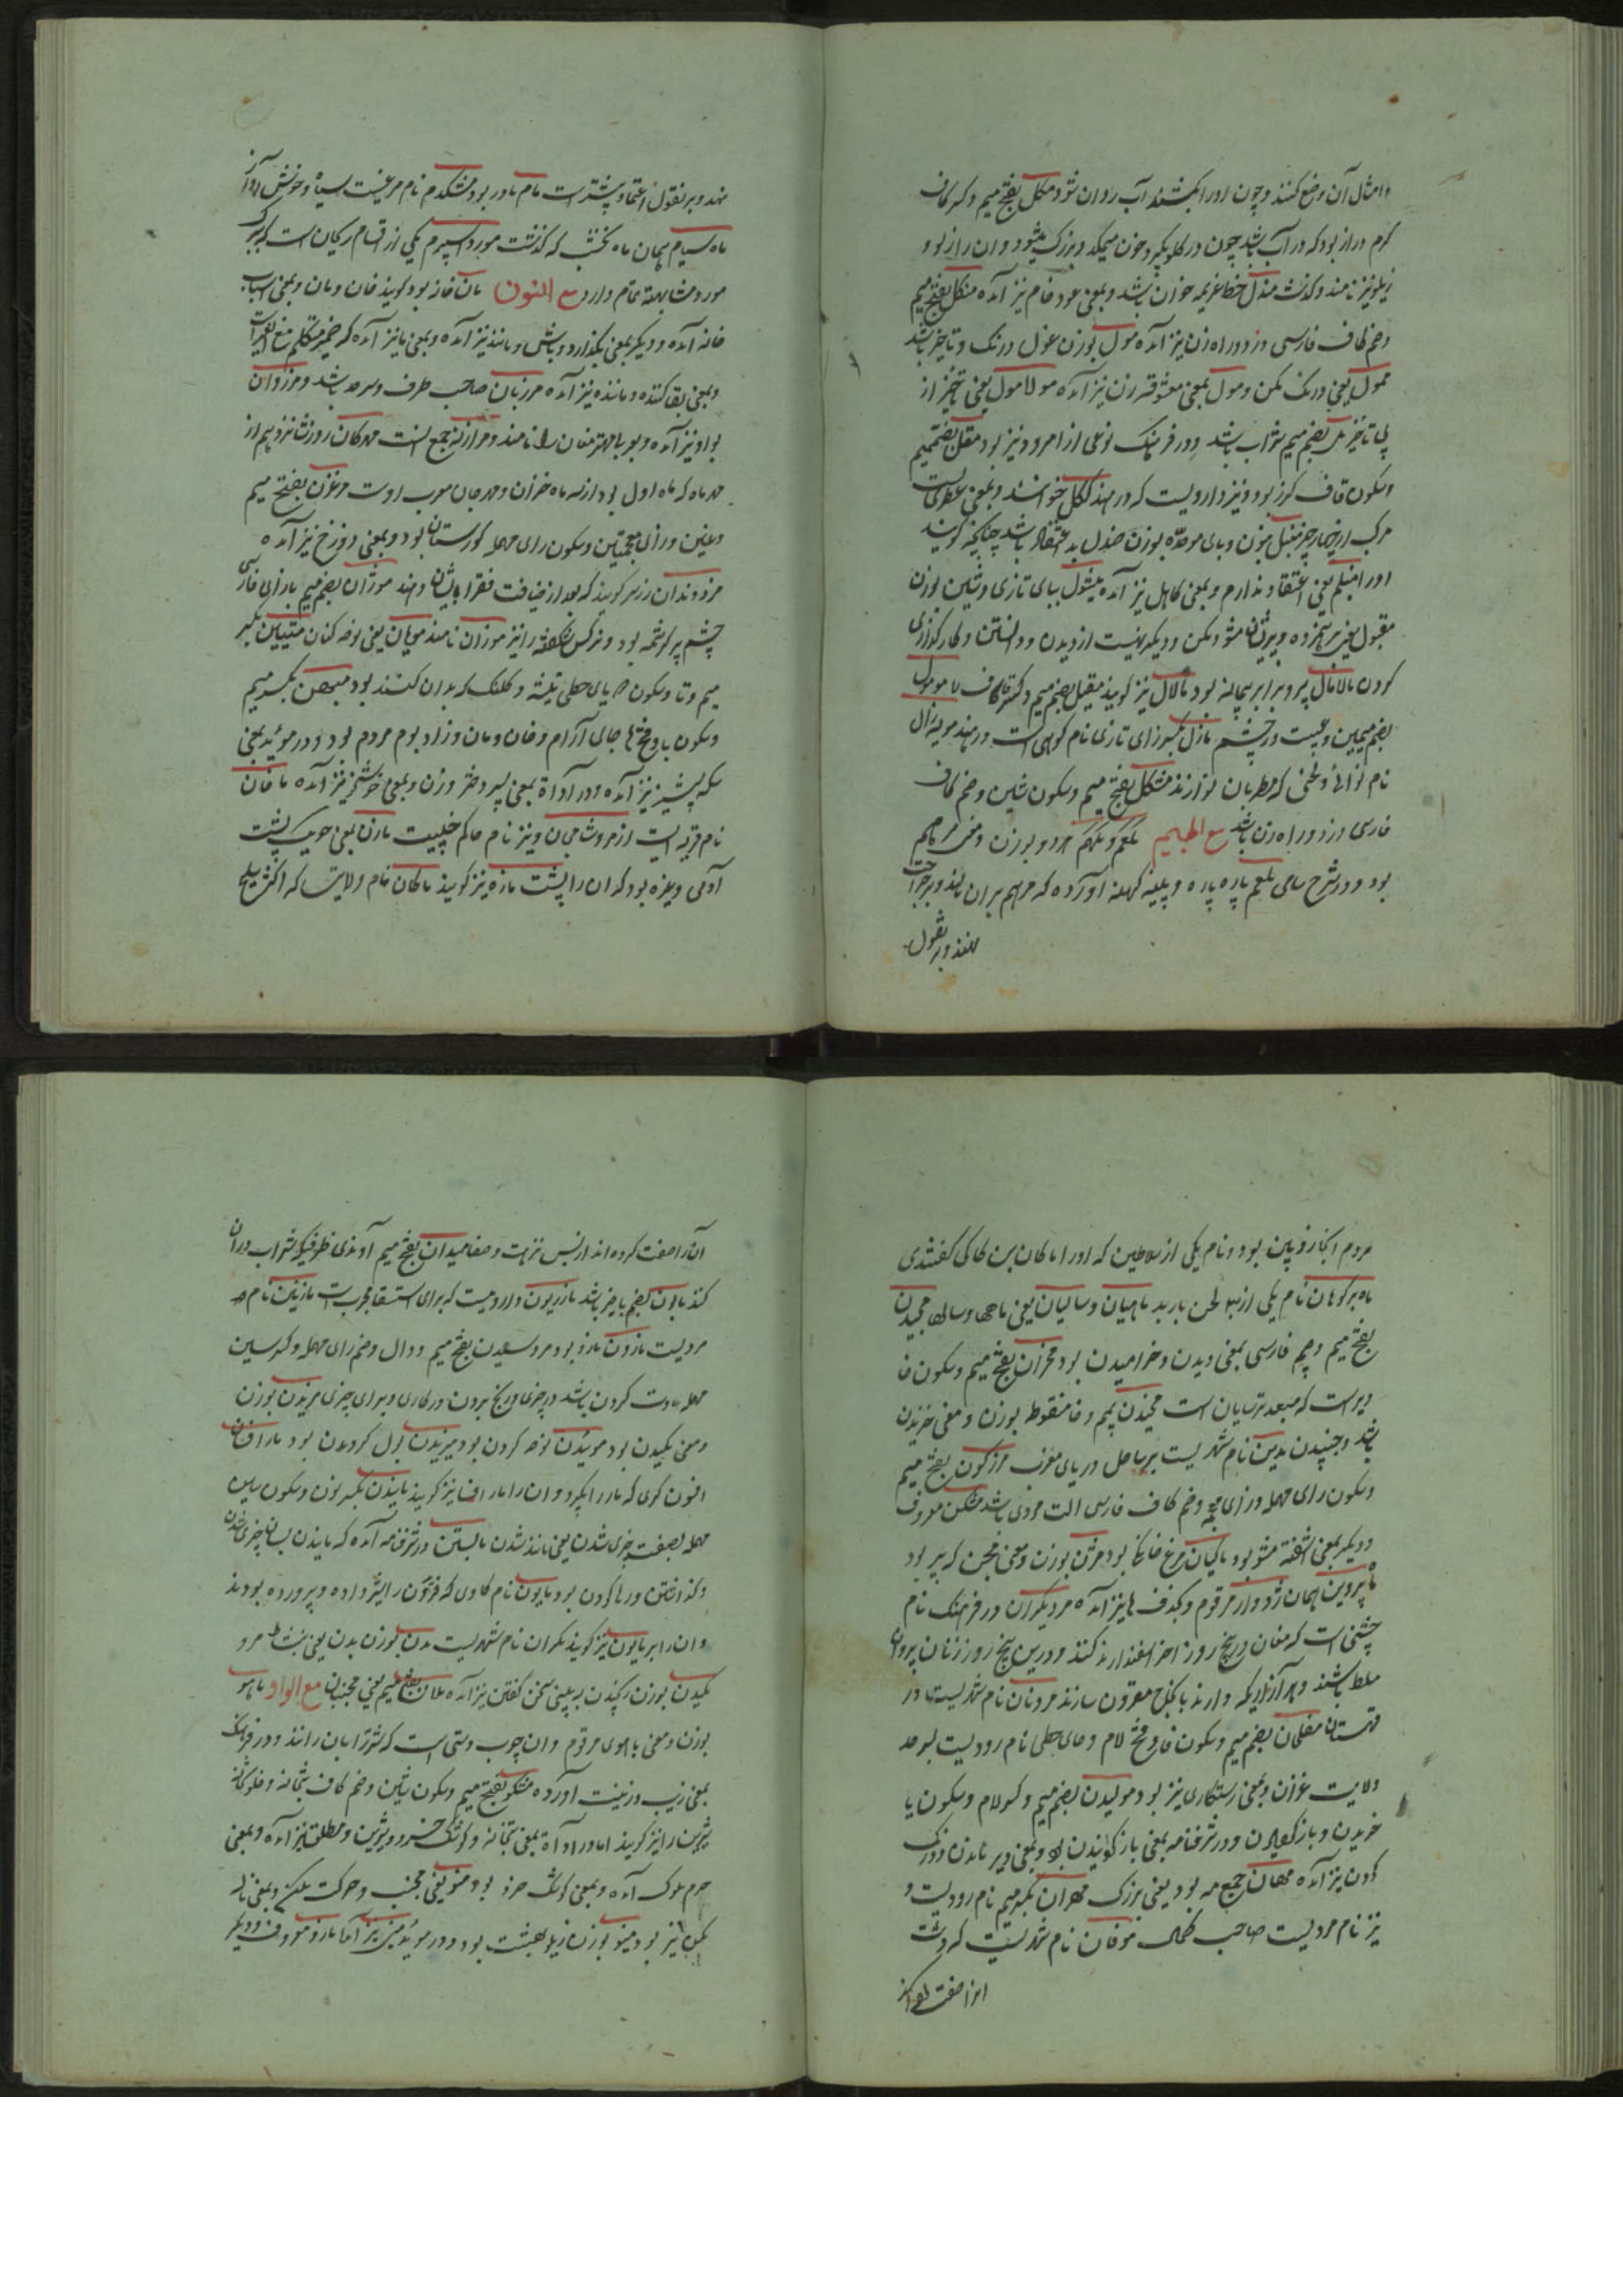 وامثال آن وضع کنند و چون اورا بکشند آب روان شود مکل بفتح میم و کسر کاف
کرم دراز بود که در آب باشد چون در کلو بگیرد خون میمکد و بزرک میشود و ان را زلو و
زیلو نیز نامند و کذشت مندل خط عزیمه خوان باشد و بمعنی عود خام نیز آمده منکل بفتح میم
وضم کاف فارسی دزد و راه زن نیز آمده مول بوزن غول درنک و تاخیر باشد
ممول یعنی درنک مکن و مول بمعنی معشوقه زن نیز آمده مولامول یعنی تاخیر از
پی تاخیر مل بضم میم شراب باشد و در فرهنک نوعی از امرود نیز بود مقل بضم میم
وسکون قاف کرز بود و نیز دارویست که در هند ککل خوانند و بمعنی عطریست
مرکب از چهار چیز منبل بنون و بای موحده بوزن صندل بد اعتقاد باشد چنانچه کویند
اورا منبلم یعنی اعتقاد ندارم و بمعنی کاهل نیز آمده مبشول ببای تازی و شین بوزن
مقبول یعنی بر همزده و پریشان مشو و مکن و دیکر نهیست از دیدن و دانستن و کار کذاری
کردن مالامال پر و برابر پیمانه بود مالال نیز کویند مقیل بضم میم و کسر قاف مومول
بضم میمین عیبیست در چشم مازل بکسر زای تازی نام کوهی است در هند مویه زال
نام نوائی و لحنی که مطربان نوازند مشکل بفتح میم وسکون شین وضم کاف
فارسی دزد و راه زن باشد مع المیم ملغم و ملهم هر دو بوزن و معنی مرهم
بود و در شرح سامی ملغم پاره پاره و پلیته کهنه آورده که مرهم بران مالند و بر جراحت
نهند و بر بقول
نهند و بر بقول اعتماد بیشتر است مام مادر بود مشکدم نام مرغیست سیاه و خوش آواز
ماه سیام همان ماه نخشب که کذشت مورد اسپرم یکی از اقسام ریحان است که ببرک
مورد مشابهة تمام دارد مع النون مان خانه بود کویند خان و مان و بمعنی اسباب
خانه آمده و دیکر بمعنی بکذارد و باش و مانند نیز آمده و بمعنی ما نیز آمده که ضمیر متکلم مع الغیر است
و بمعنی بقا کننده و مانده نیز آمده مرزبان صاحب طرف و سرحد باشد و مرزوان
بواو نیز آمده و بعربی مهتر مغان را نامند و مرازبه جمع انست مهرکان روز شانزدهم از
مهر ماه که ماه اول بود از سه ماه خزان و مهرجان معرب اوست مرغزن بفتح میم
و غین و زای معجمتین و سکون رای مهمله کورستان بود و بمعنی دوزخ نیز آمده
مزد دندان زر زر کویند که بعد از ضیافت فقرا بایشان دهند موژان بضم میم با زای فارسی
چشم پر کرشمه بود و نرکس شکفته را نیز موژان نامند مویان یعنی نوحه کنان متیین بکسر
میم و تا و سکون یای حطی تیشه و کلنک که بدان کنند بود میهن بکسر میم
و سکون یا و فتح ها جای آرام و خان و مان و زاد بوم مردم بود و در مؤید بمعنی
سکه پشیز نیز آمده و در اداة بمعنی پسر و دختر و زن و بمعنی خویش نیز آمده ماخان
نام قریه ایست از مرو شاهجان و نیز نام حاکم خبیث مازن بمعنی جویک پشت
آدمی و غیره بود که ان را پشت مازه نیز کویند ماکان نام ولایتی که اکثر پیله
مردم انجا زوبین بود و نام یکی از سلاطین که اورا ماکان بن کاکی کفتندی
ماه بر کوهان نام یکی از سی لحن باربد ماهیان و سالیان یعنی ماهها و سالها مچیدن
بفتح میم و جیم فارسی بمعنی دیدن و خرامیدن بود مخران بفتح میم وسکون خا
دیر است که معبد ترسایان است مخیدن بمیم و خا منقوط بوزن و معنی خزیدن
باشد و جنبیدن مدین نام شهریست بر ساحل دریای مغرب مرزکون بفتح میم
وسکون رای مهمله و زای معجمه وضم کاف فارسی الت مردی باشد مشکن معروف
و دیکر بمعنی اشفته مشو بود ماکیان مرغ خانکی بود مرغن بوزن و معنی مجمن که پیر بود
ماه پروین همان ژدوار مرقوم و بحذف ها نیز آمده مردکیران در فرهنک نام
جشنی است که مغان در پنج روز اخر اسفندارمذ کنند و درین پنج روز زنان بر مردان
مسلط باشند و هر آرزوئیکه دارند با نجاح مقرون سازند مردنان نام شهریست در
قهستان مفلحان بضم میم وسکون فا و فتح لام وحای حطی نام رودیست بسرحد
ولایت غزان و بمعنی رستکاری نیز بود مولیدن بضم میم و کسر لام وسکون یا
خزیدن و باز کردیدن و در شرفنامه بمعنی باز کردانیدن بود و بمعنی دیر ماندن و درنک
کردن نیز آمده مهان جمع مه بود یعنی بزرک مهران بکسر میم نام رودیست و
نیز نام مردیست صاحب کمال موقان نام شهریست که در دشت
انرا صفت کرده اند
آنرا صفت کرده اند از بس نزهت و صفا میدان بفتح میم آوندی ظرفیکه شراب دران
کنند مادن بضم یا چیز باشد مازریون دارویست که برای استسقا مجرب است مازنین نام
مردیست مازون مازو بود مروسیدن بفتح میم و واو وضم رای مهمله و کسر سین
مهمله عادت کردن باشد در چیزی و رنج بردن در کاری و برای چیزی مزیدن بوزن
و معنی مکیدن بود موئیدن نوحه کردن بود میزیدن بول کردن بود مارافسان
افسون کری که مار را بگیرد و ان را مارافسا نیز کویند مانیدن بکسر نون وسکون سین
مهمله بصفت چیزی شدن یعنی مانند شدن مانستن در شرفنامه آمده که مانیدن بسان چیزی شدن
و کذاشتن و رها کردن بود مایون نام کاوی که فریدون را شیر داده و پرورده بودند
و ان را برمایون نیز کویند مکران نام شهریست مدن بوزن بدن یعنی بنشاط مرو
مکیدن بوزن رسیدن به بینی سخن کفتن نیز آمده ملان بفتح میم یعنی مجنبان مع الواو ماهو
بوزن و معنی یاهوی مرقوم و ان چوب دستی است که شتربانان رانند و در فرهنک
بمعنی زیب و زینت آورده مشکو بفتح میم وسکون شین وضم کاف بتخانه و خلوتخانه
شیرین را نیز کویند اما در اداة بمعنی بتخانه و کوشک خسرو و شیرین و مطلق نیز آمده و بمعنی
حرم ملوک آمده و بمعنی کوشک خرد بود منو یعنی مجنب و حرکت مکن و بمعنی ناله
مکن نیز بود مینو بوزن نیکو بهشت بود و در مؤید بمعنی نیز آمده مازو معروف و دیکر